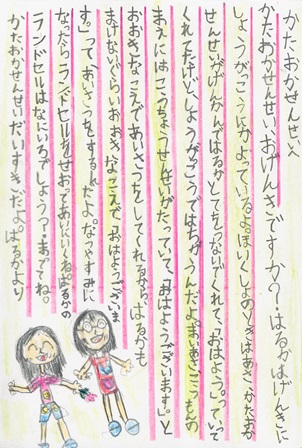 かたおかせんせいへ
かたおかせんせい、おげんきですか？はるかはげんきに
しょうがっこうにかよっているよ。ほいくしょのときはあさ、かたおか
せんせいがげんかんではるかとてをつないでくれて、「おはよう。」っていって
くれてたけど、しょうがっこうではちがうんだよ。まいあさこうもんの
まえにはこうちょうせんせいがたっていて、「おはようございます。」と
おおきなこえであいさつをしてくれるから、はるかも
まけないぐらいおおきなこえで「おはようございま
す。」ってあいさつをするんだよ。なつやすみに
なったらランドセルをせおってあいにいくね。はるかの
ランドセルはなにいろでしょう？まっててね。
かたおかせんせいだいすきだよ。はるかより